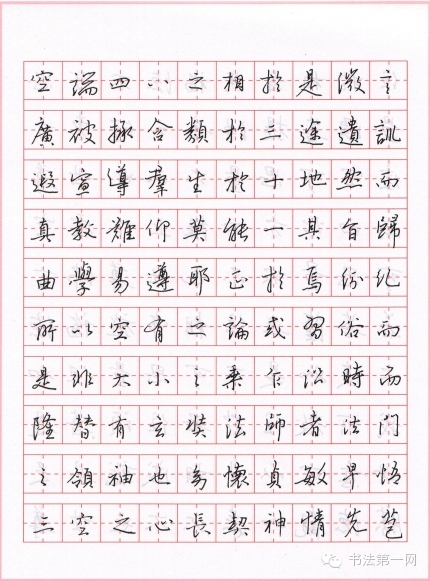 空端四八之相於是微言
廣被拯含類於三途遺訓
遐宣導羣生於十地然而
真教難仰莫能一其旨歸
曲學易遵耶正於焉紛糺
所以空有之論或習俗而
是非大小之乘乍沿時而
隆替有玄奘法師者法門
之領袖也幼懷貞敏早悟
三空之心長契神情先苞
书法第一网